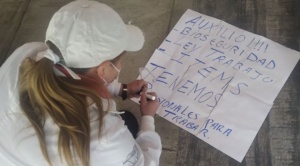 AUXILIO!!!
- BIOSEGURIDAD
- TRABAJO
- ITEMS
TENEMOS
PARA
TRABAR